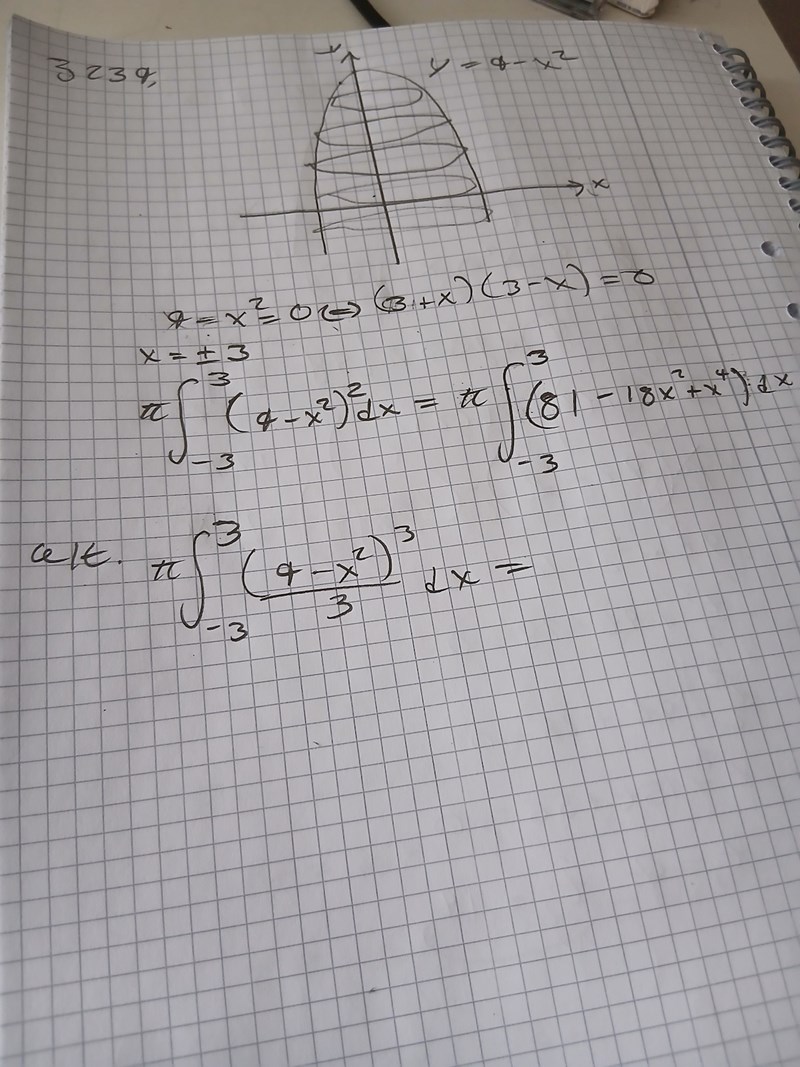 3239.
y
y = 9 - x²
x
9 = x² = 0 ⇔ (3+x)(3-x) = 0
x = ± 3
π∫₋₃³ (9-x²)² dx = π∫₋₃³ (81 - 18x² + x⁴) dx
alt. π∫₋₃³ (9-x²)³/3 dx =